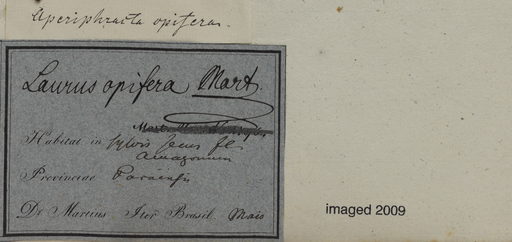 Aperiphracta opifera.
Laurus opifera Mart.
Habitat in sylvis secus fl.
Amazonum
Provinciae Paraënsis
Dr Martius Iter Brasil. Maio
imaged 2009